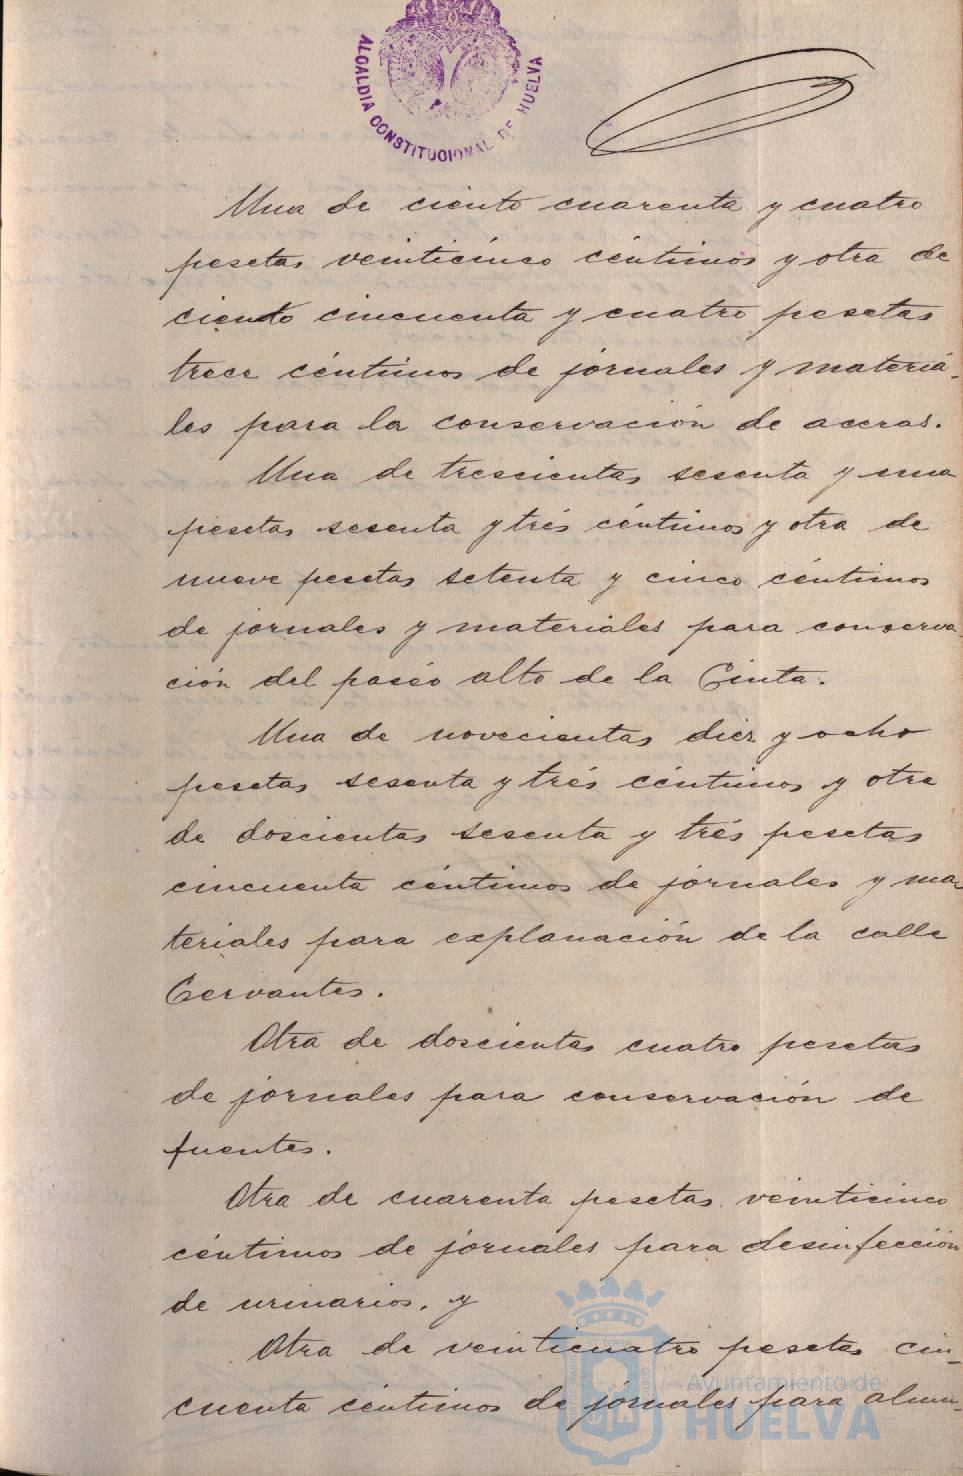 ALCALDIA CONSTITUCIONAL DE HUELVA
Una de ciento cuarenta y cuatro
pesetas veinticinco céntimos y otra de
ciento cincuenta y cuatro pesetas
trece céntimos de jornales y materia-
les para la conservación de aceras.
Una de trescientas sesenta y una
pesetas sesenta y trés céntimos y otra de
nueve pesetas setenta y cinco céntimos
de jornales y materiales para conserva-
ción del paséo alto de la Cinta.
Una de novecientas diez y ocho
pesetas sesenta y trés céntimos y otra
de doscientas sesenta y trés pesetas
cincuenta céntimos de jornales y ma-
teriales para explanación de la calle
Cervantes.
Otra de doscientas cuatro pesetas
de jornales para conservación de
fuentes.
Otra de cuarenta pesetas veinticinco
céntimos de jornales para desinfección
de urinarios, y
Otra de veinticuatro pesetas cin-
cuenta céntimos de jornales para alum-
Ayuntamiento de
HUELVA